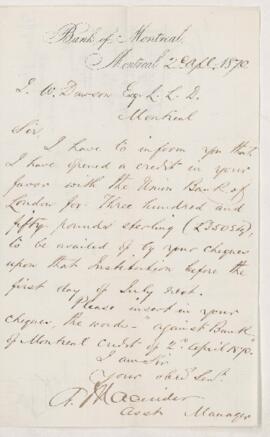 Bank of Montreal,
Montreal 2d Apl. 1870
J. W. Dawson Esq. L. L. D.
Montreal
Sir,
I have to inform you that
I have opened a credit in your
favor with the Union Bank of
London for Three hundred and
fifty pounds sterling (£350 Stg)
to be availed of by your cheques
upon that Institution before the
first day of July next.
Please insert in your
cheques, the words "against Bank
of Montreal credit of 2d April 1870."
I am Sir
Your obed Servt.
Asst Manager